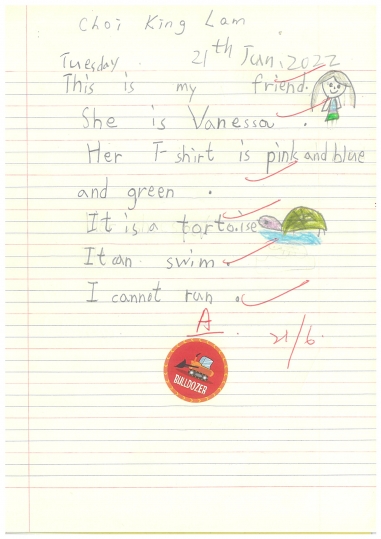 Choi King Lam
Tuesday. 21th Jun, 2022
This is my friend.
She is Vanessa.
Her T-shirt is pink and blue
and green.
It is a tortoise
It can swim.
I cannot run.
A.
21/6.
BULLDOZER